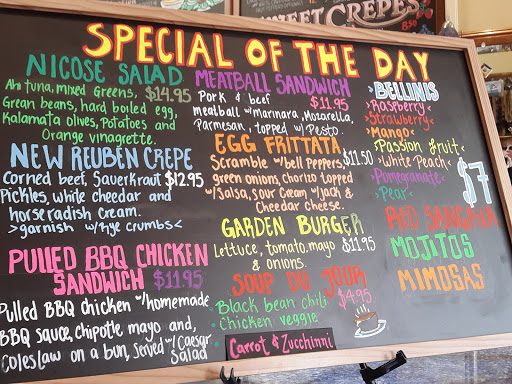 SWEET CRÊPES
SPECIAL OF THE DAY
NICOSE SALAD
Ahi tuna, mixed Greens, $14.95
Grean beans, hard boiled egg,
Kalamata olives, Potatoes and
Orange vinagrette.
NEW REUBEN CREPE
Corned beef, Sauerkraut $12.95
Pickles, white cheedar and
horseradish Cream.
>garnish w/rye crumbs<
PULLED BBQ CHICKEN
SANDWICH $11.95
Pulled BBQ chicken w/homemade
BBQ sauce, chipotle mayo and,
Coleslaw on a bun, served w/Caesar
Salad
MEATBALL SANDWICH
Pork & beef $11.95
meatball w/marinara, Mozarella,
Parmesan, topped w/Pesto.
EGG FRITTATA
Scramble w/bell Peppers, $11.50
green onions, chorizo topped
w/Salsa, Sour Cream w/Jack &
Cheedar cheese.
GARDEN BURGER
Lettuce, tomato, mayo $11.95
& onions.
SOUP DU JOUR
Black bean chili $4.95
Chicken veggie
Carrot & Zucchinni
>BELLINIS
>Raspberry<
>Strawberry<
>Mango<
>Passion fruit<
>White Peach<
>Pomegranate
>Pear<
$7
RED SANGRIA
MOJITOS
MIMOSAS